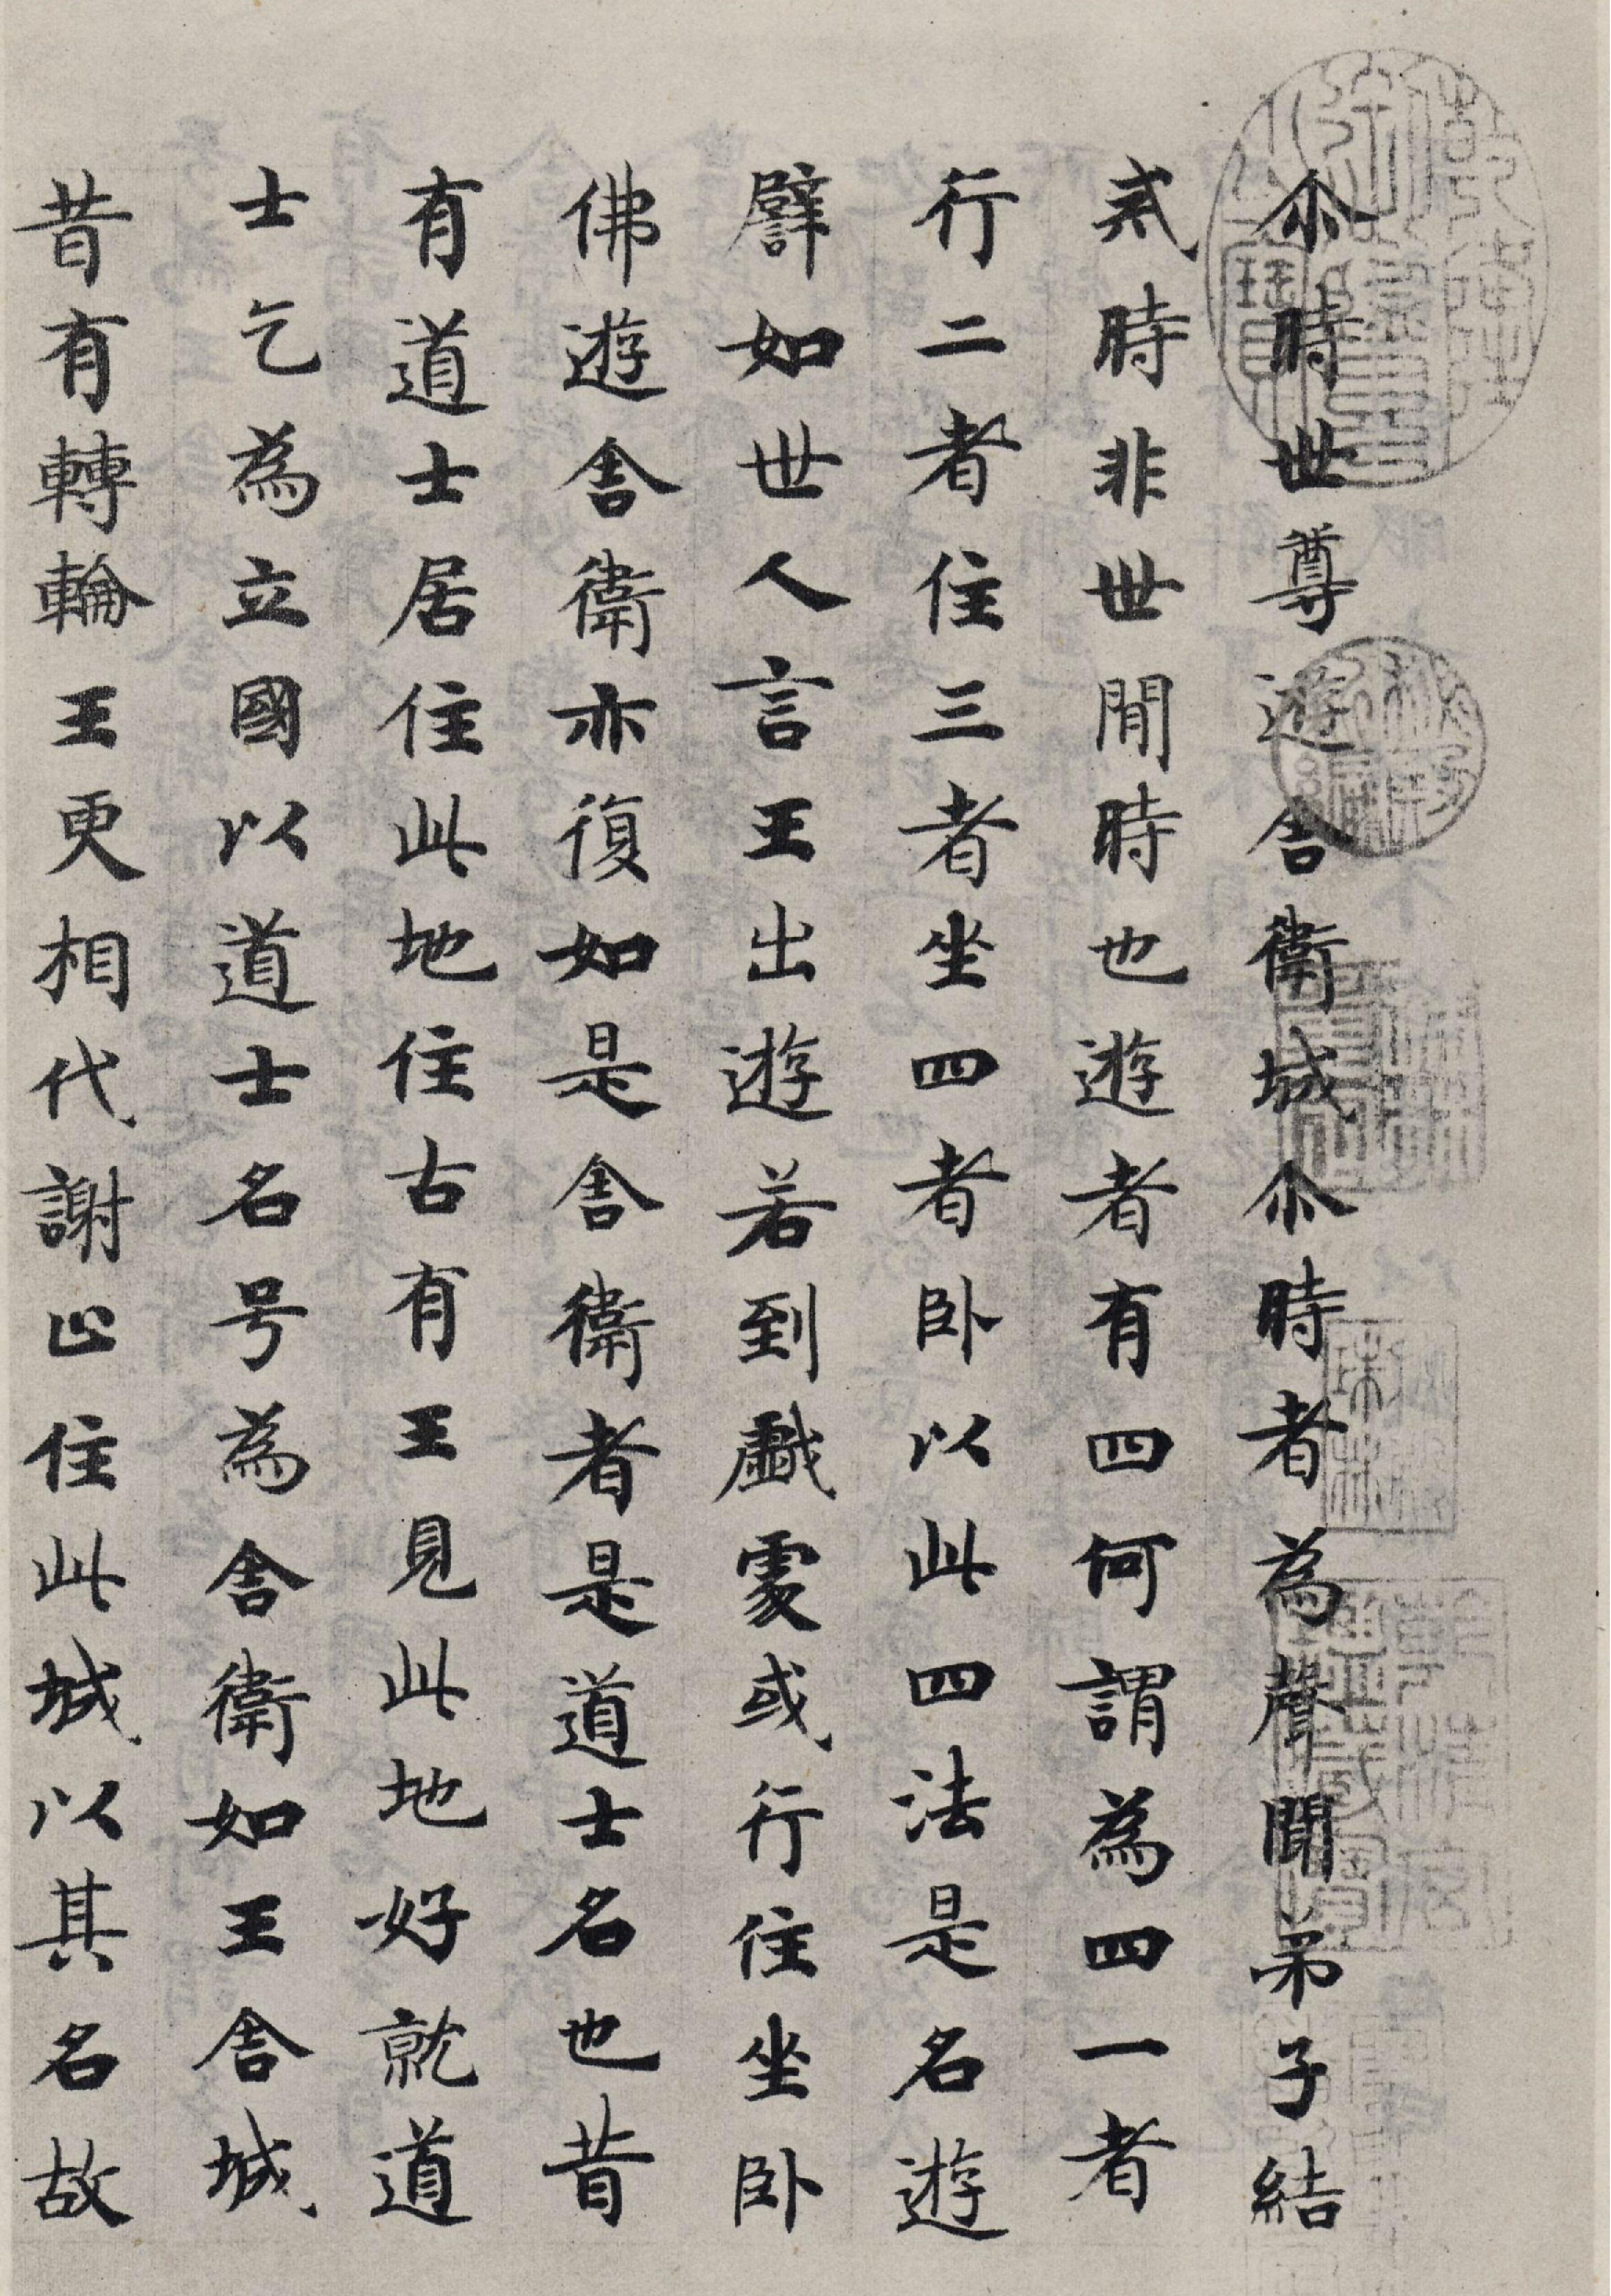 尒時世尊遊舍衛城尒時者為聲聞弟子結
戒時非世間時也遊者有四何謂為四一者
行二者住三者坐四者卧以此四法是名遊
譬如世人言王出遊若到戲處或行住坐卧
佛遊舍衛亦復如是舍衛者是道士名也昔
有道士居住此地住古有王見此地好就道
士乞為立國以道士名号為舍衛如王舍城
昔有轉輪王更相代謝止住此城以其名故